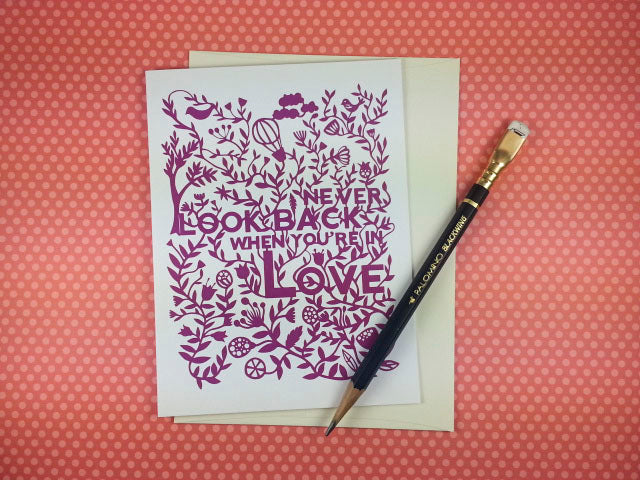 NEVER
LOOK BACK
WHEN YOU'RE IN
LOVE
PALOMINO BLACKWING